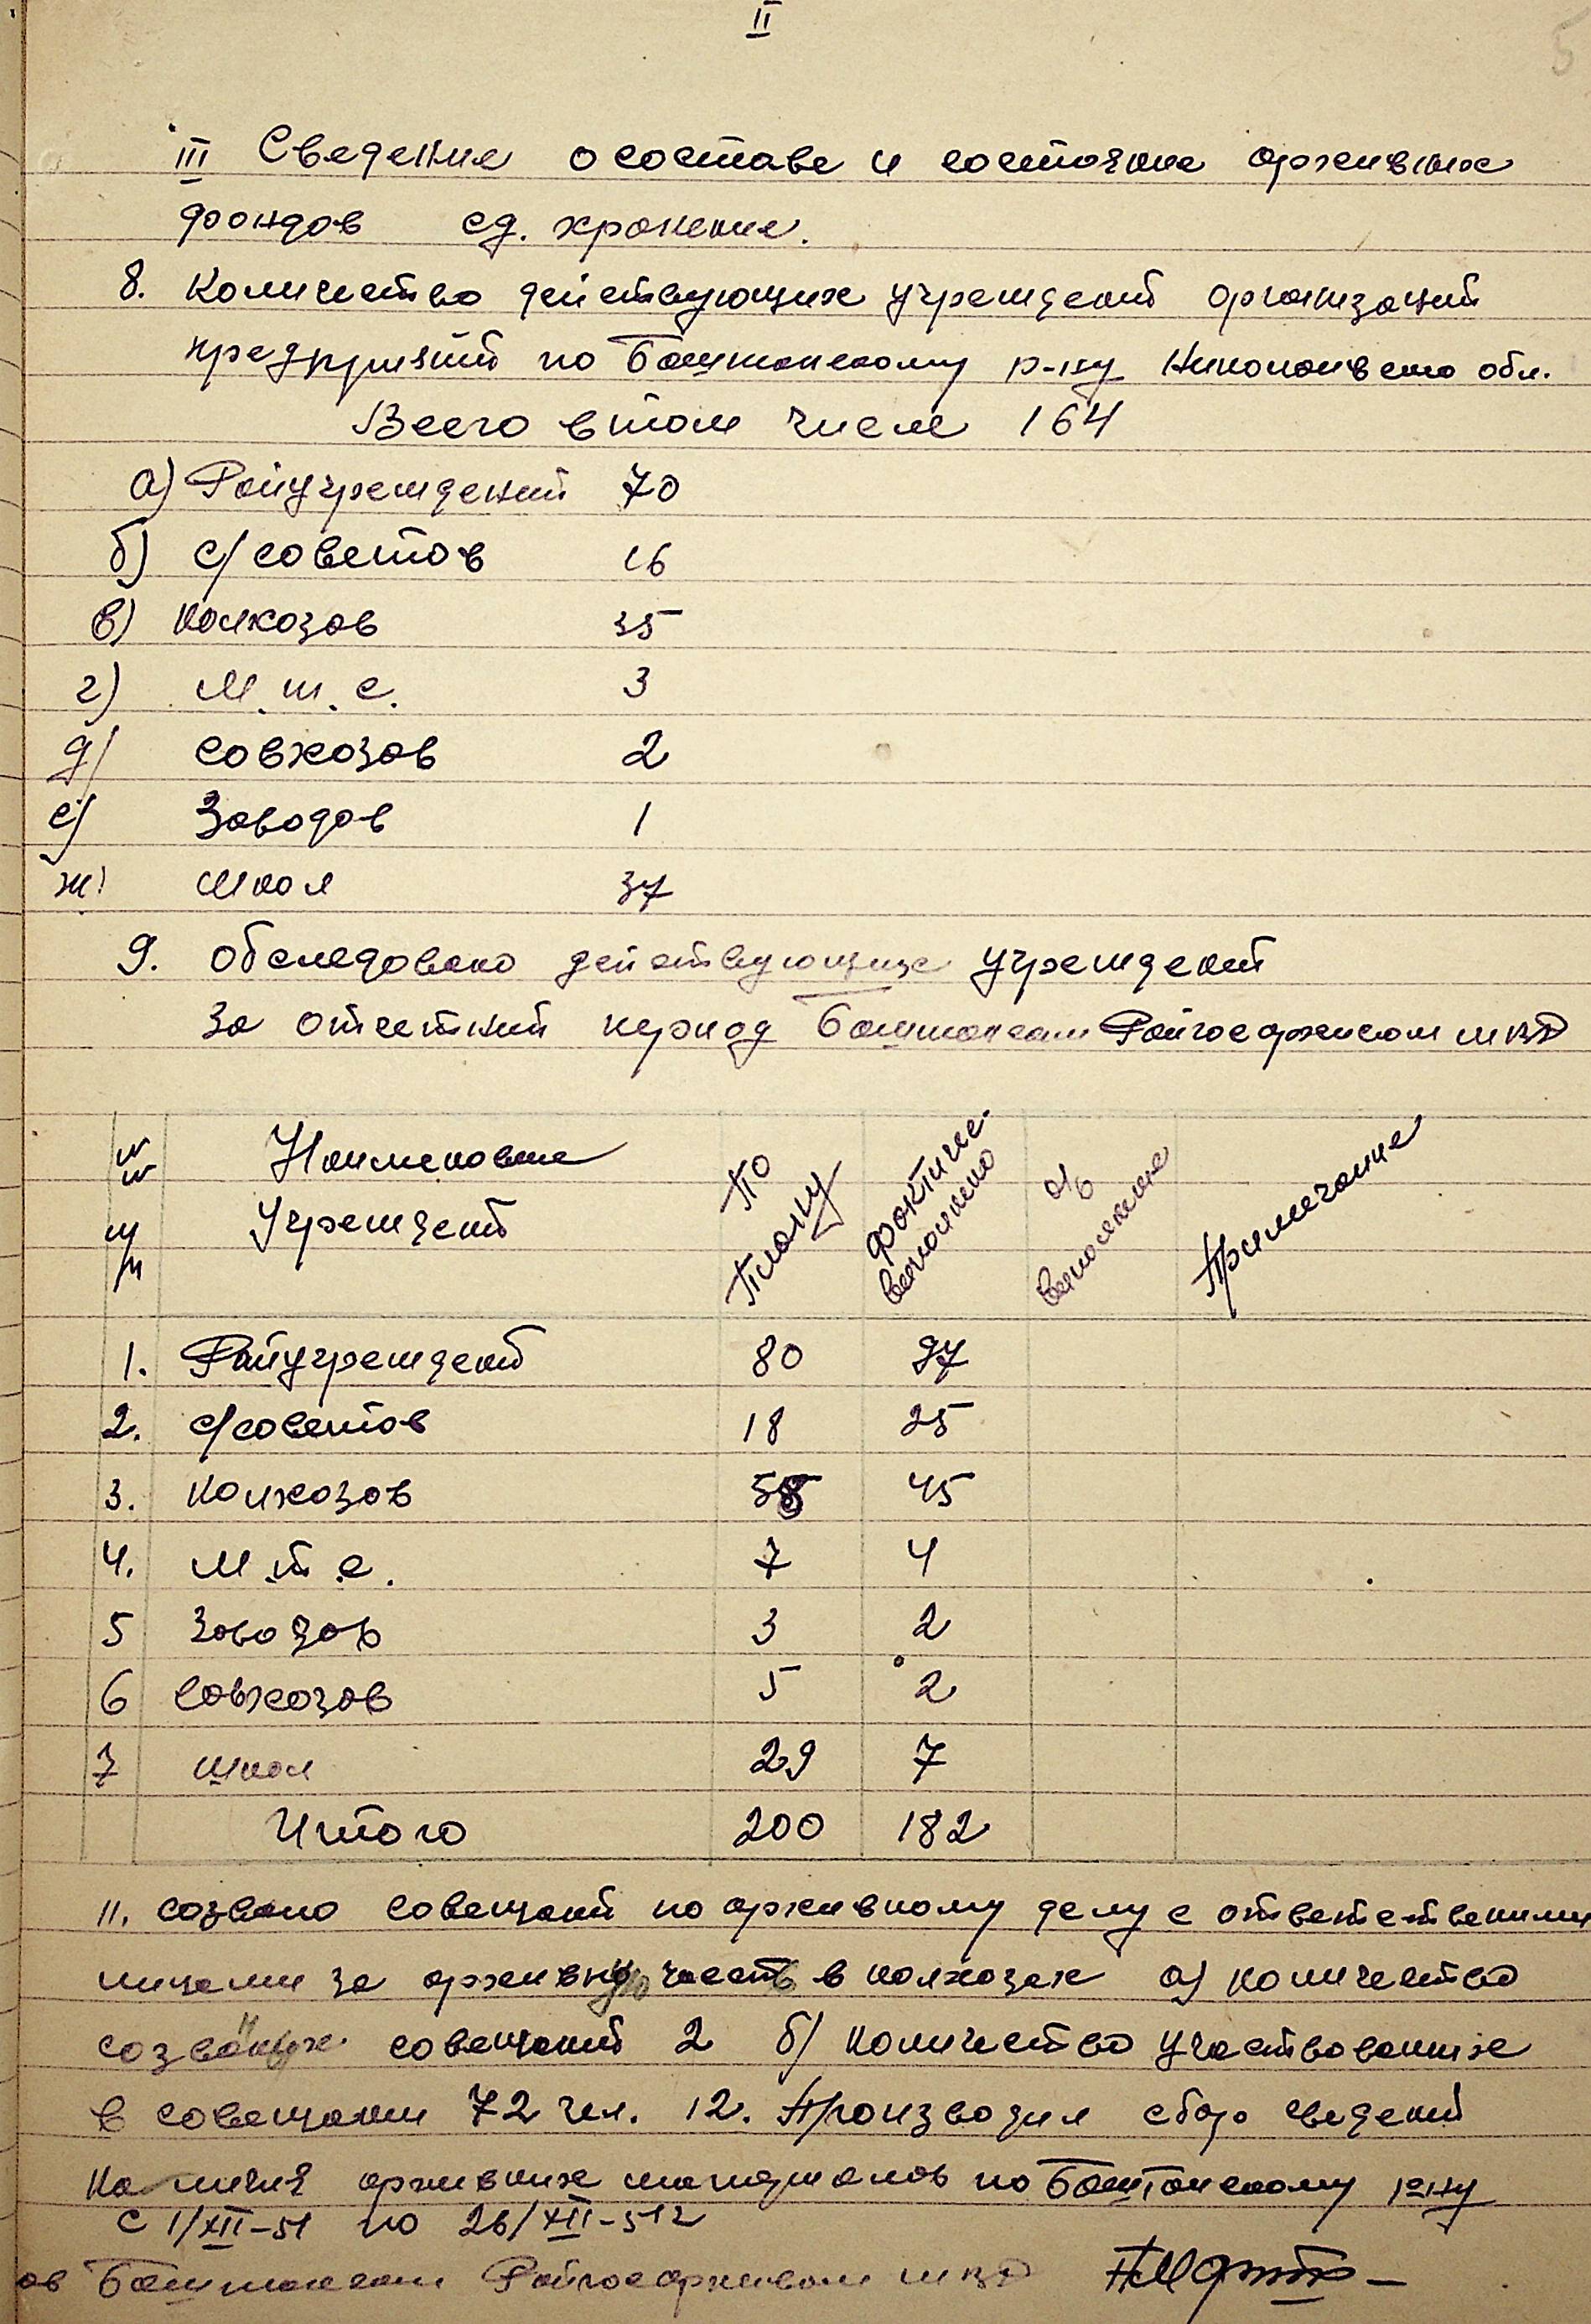 II
5
III Сведения о составе и состояние архивных
фондов ед. хронение.
8. Количество действующих учреждений организаций
предприятий по Баштанскому р-ну Николаевского обл.
Всего в том числе 164
а) Райучреждений 70
б) с/советов 16
в) колхозов 35
г) М.т.с. 3
д) совхозов 2
е) Заводов 1
ж) школ 37
9. обследовано действующих учреждений
за отчетний период Баштанским Райгосархивом МВД
№№ пп Наименование Учреждений По плану фактиче. выполнено % выполнение Примечание
1. Райучреждений 80 97
2. с/советов 18 25
3. колхозов 58 45
4. М.т.с. 7 4
5 Заводов 3 2
6 совхозов 5 2
7 школ 29 7
Итого 200 182
11. созвано совещаний по архивному делу с ответственими
лицами за архивную часть в колхозах а) количество
созваных совещаний 2 б) количество участвовавших
в совещании 72 чел. 12. Производил сбор сведений
наличия архивних материалов по Баштанскому р-ну
с 1/XII-51 по 26/XII-51г
Баштанским Райгосархивом МВД